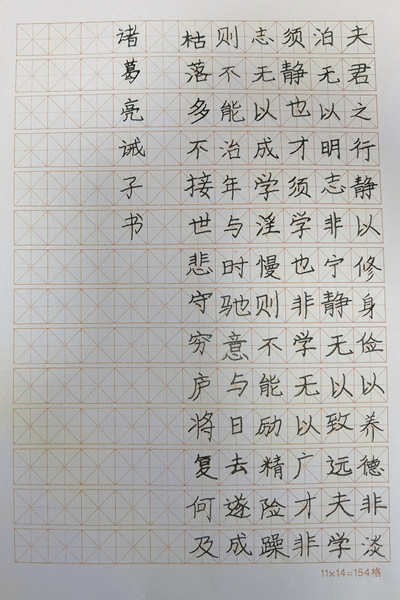 夫君之行静以修身俭以养德非淡
泊无以明志非宁静无以致远夫学
须静也才须学也非学无以广才非
志无以成学淫慢则不能励精险躁
则不能治年与时驰意与日去遂成
枯落多不接世悲守穷庐将复何及
诸葛亮诫子书
11×14=154格